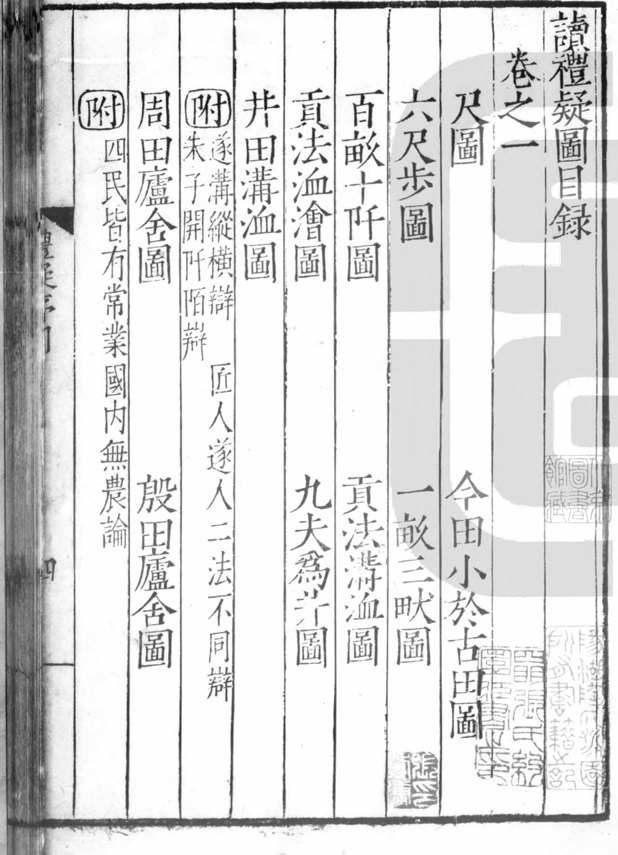 讀禮疑圖目録
卷之一
尺圖 今田小於古田圖
六尺步圖 一畝三畎圖
百畝十阡圖 貢法溝洫圖
貢法洫澮圖 九夫爲井圖
井田溝洫圖
附 遂溝縱橫辯 匠人遂人二法不同辯
朱子開阡陌辯
周田廬舍圖 殷田廬舍圖
附 四民皆有常業國内無農論
四